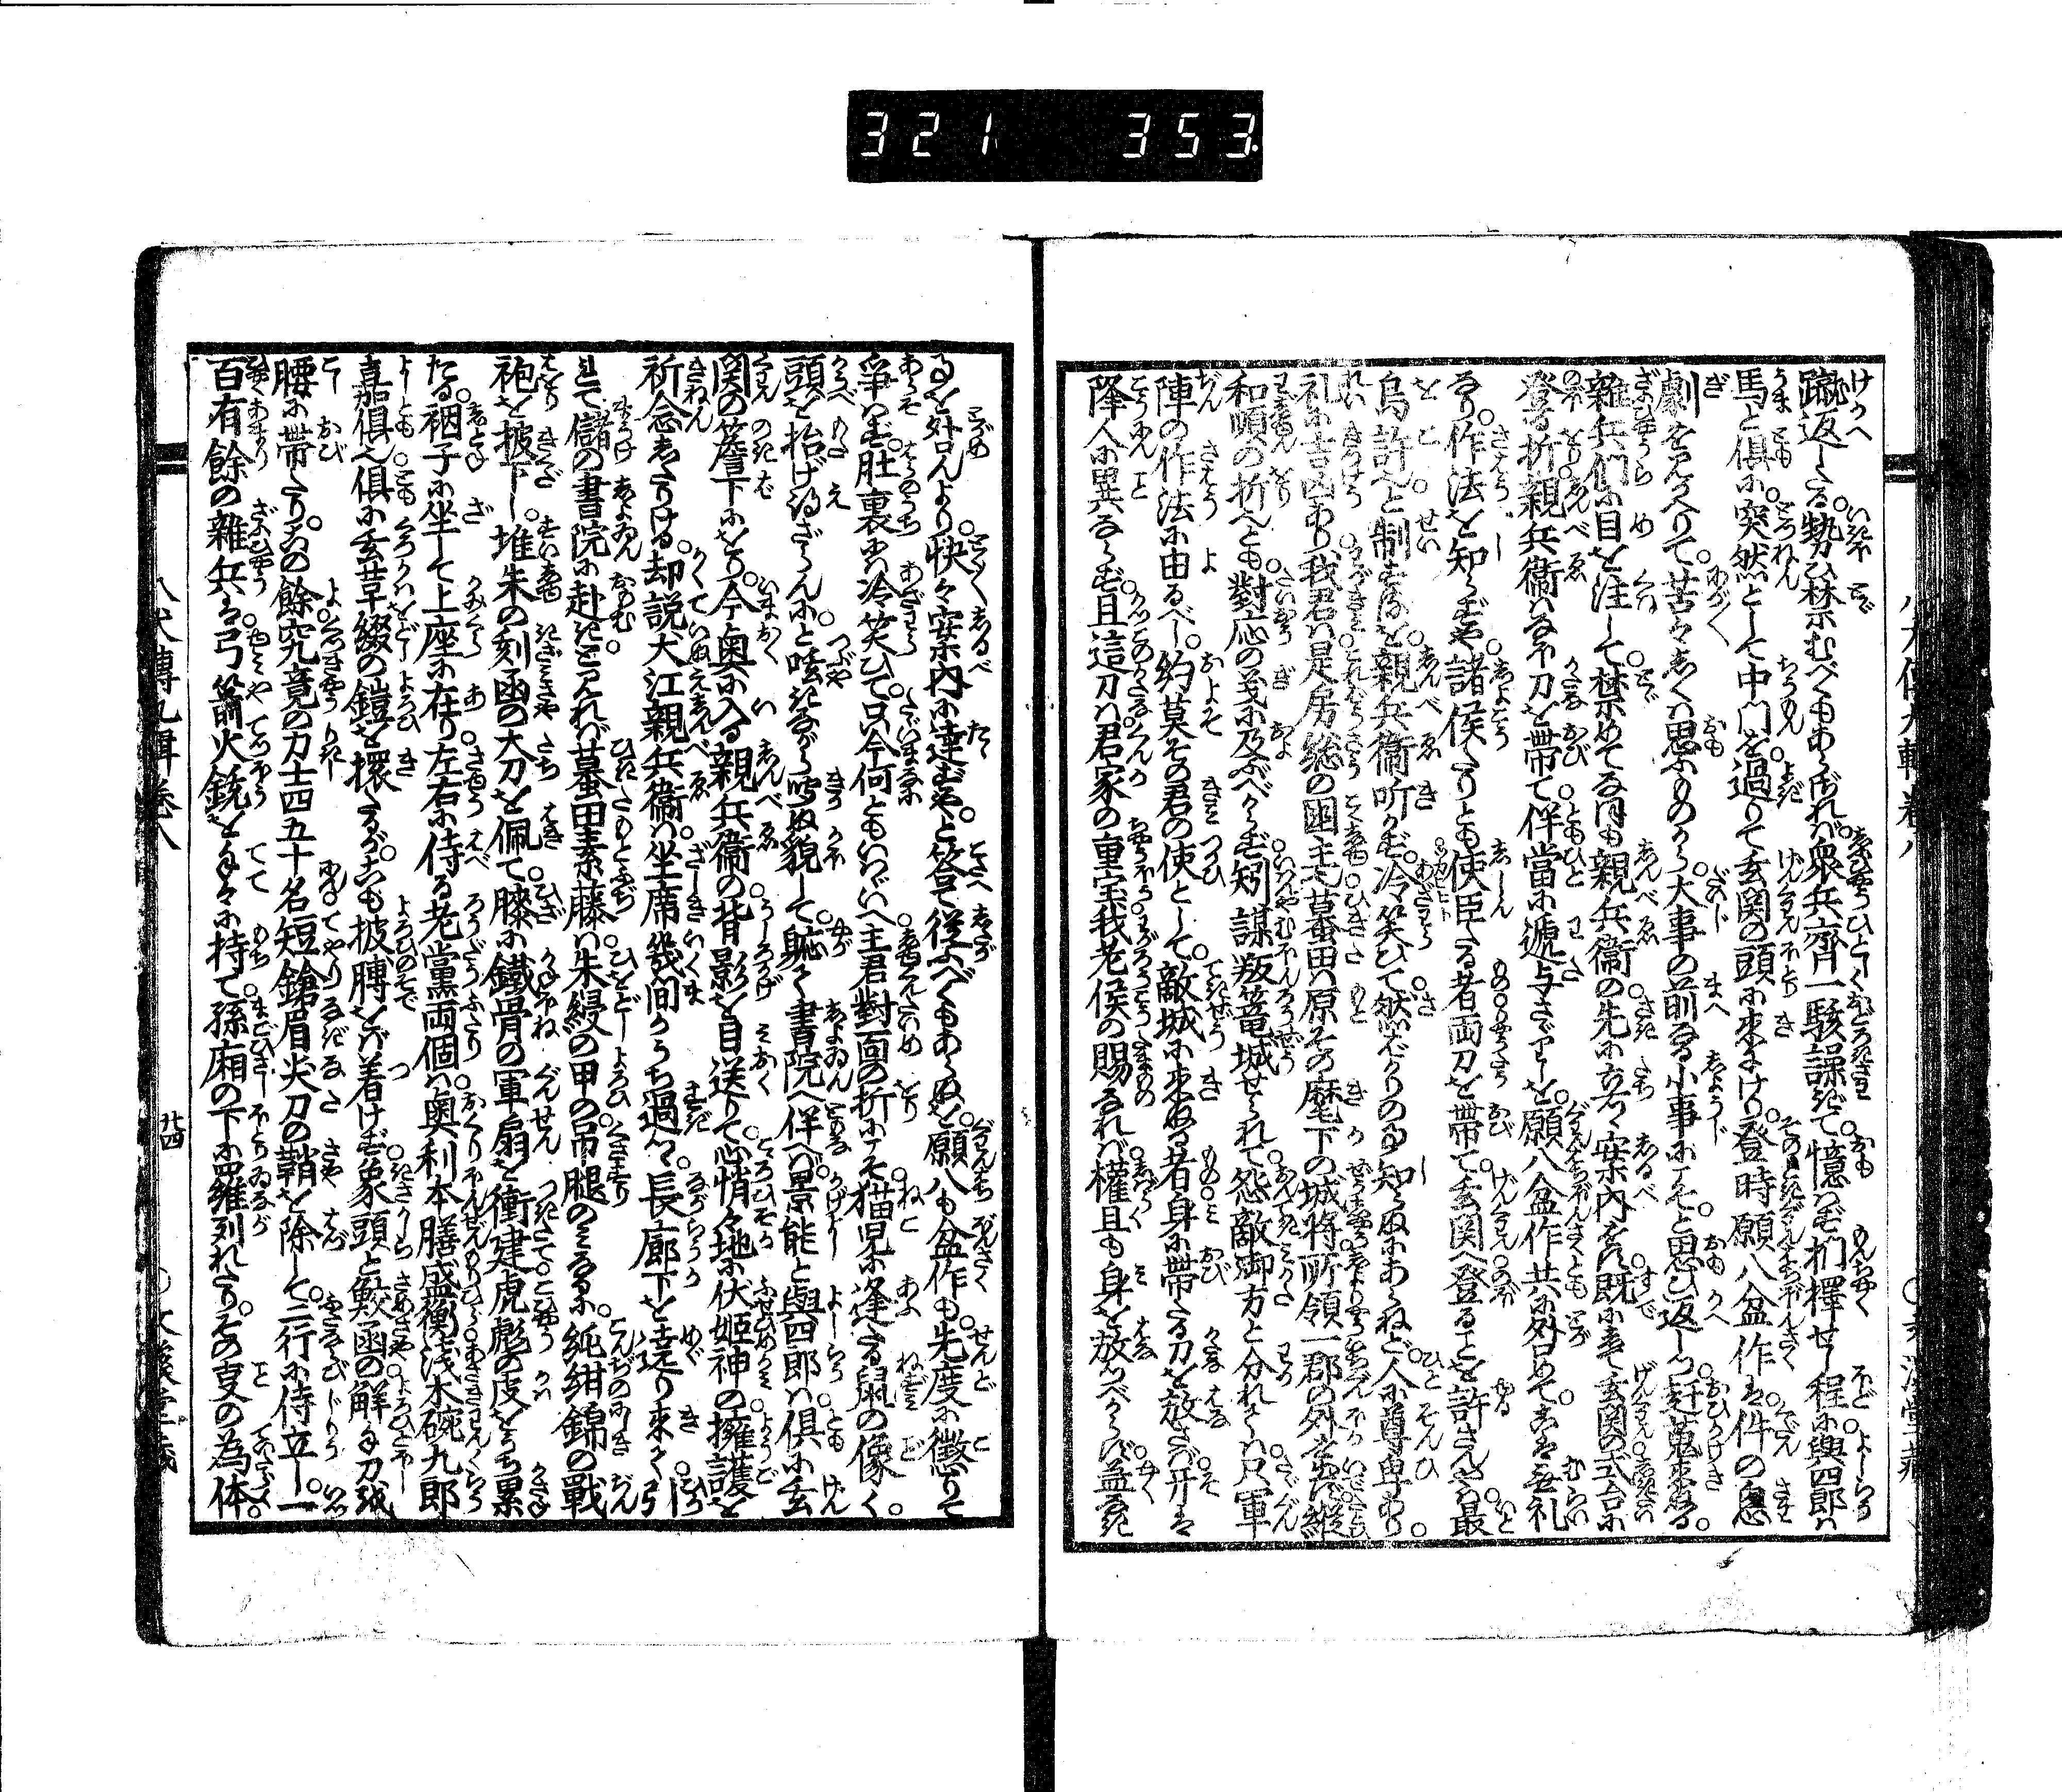 321 353
蹴返したる。勢ひ禁むべくもあらざれば。衆兵齊一駭譟ぎて。憶はず捫擇せし程に。與四郎は
馬と倶に。突然として中門を。過りて玄関の頭に來にけり。登時願八盆作は。件の怱
劇をえかへりて。苦々しくは思ふものから。大事の前なる小事にこそと思ひ返しつ。赶蒐來ぬる。
雜兵們に目を注して。禁めてる間も親兵衞の。先に立々案内をしつ。既に來て玄関の式台に
登る折。親兵衞はなほ刀を帶て。伴當に遞与さゞりしを。願八盆作共に外めて。こは無礼
なり。作法を知らずや。諸侯たりとも使臣たる者。両刀を帶て。玄関へ登ることを許さんや。最
烏許也と制するを。親兵衞听かず。冷笑ひて。然ばかりの事知らぬにあらねど。人に尊卑あり。
礼に吉凶あり。我君は是房総の國主也。蟇田は原その麾下の城將。所領一郡の外に出ず。縱
和順の折也とも。對應の義に及ぶべからず。矧謀叛篭城せられて。怨敵御方と分れては。只軍
陣の作法に由るべし。約莫その君の使として。敵城に來ぬる者。身に帶たる刀を放さば。开は
降人に異ならず。且這刀は君家の重宝。我老侯の賜なれば。權且も身を放つべからず。益なき
事を外んより。快々案内に達ずや。と答て從ふべくもあらぬを。願八も盆作も。先度に懲りて
爭はず。肚裏には冷笑ひて。只今何ともいはゞいへ。主君對面の折にこそ。猫児に逢る鼠の像く。
頭を抬げ得ざらんに。と呟きながら听ぬ貌して。軈て書院へ伴へば。景能と與四郎は。倶に玄
関の簷下にをり。今奥に入る親兵衞の。背影を目送りて。心悄々地に伏姫神の。擁護を
祈念したりける。却説犬江親兵衞は。坐席幾間かうち過つ。長廊下を遶り來て。引
れて儲の書院に赴きてえれば。蟇田素藤は。朱綬の甲の。吊腿のえなるに。純紺錦の戰
袍を披下し。堆朱の刻函の大刀を佩て。膝に鐵骨の軍扇を衝建。虎彪の皮をうち累
たる。裀子に坐して上座に在り。左右に侍る老黨両個は。奥利本膳盛衡。浅木碗九郎
嘉倶也。倶に玄草綴の鎧を擐たるが。こも披膊をば着けず。象頭と鮫函の解手刀𢧵
腰に帶たり。この餘究竟の力士四五十名。短鎗眉尖刀の鞘を除して。二行に侍立し。一
百有餘の雜兵は。弓箭火銃をてん々に持て。孫廂の下に羅列れたり。この叓の為体。
八犬傳九輯卷八
廿四